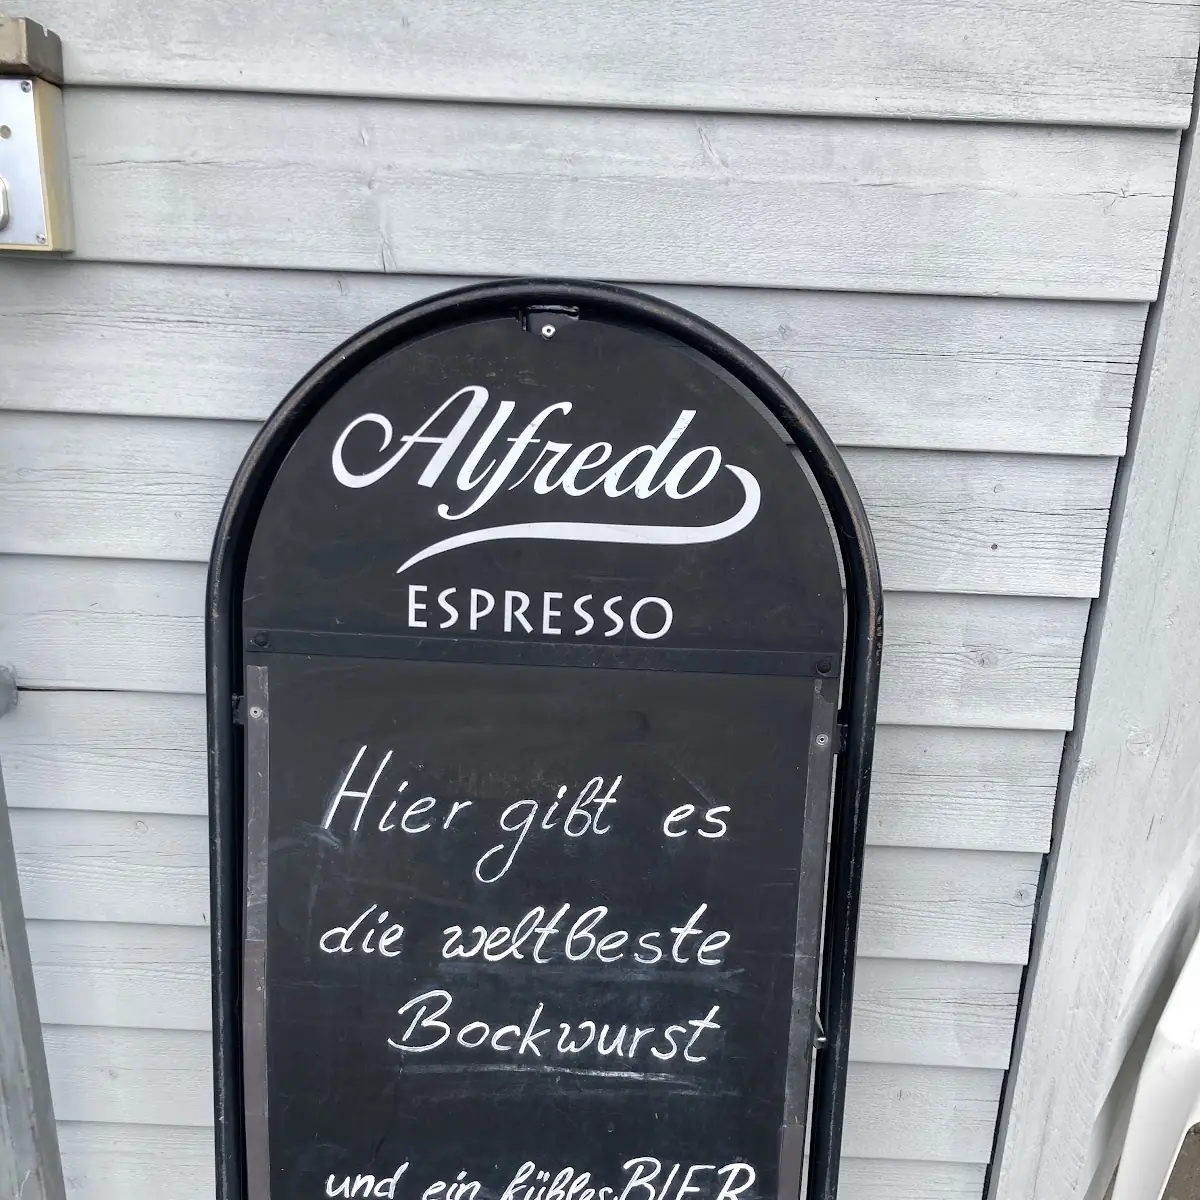 Alfredo
ESPRESSO
Hier gibt es
die weltbeste
Bockwurst
und ein kühles BIER